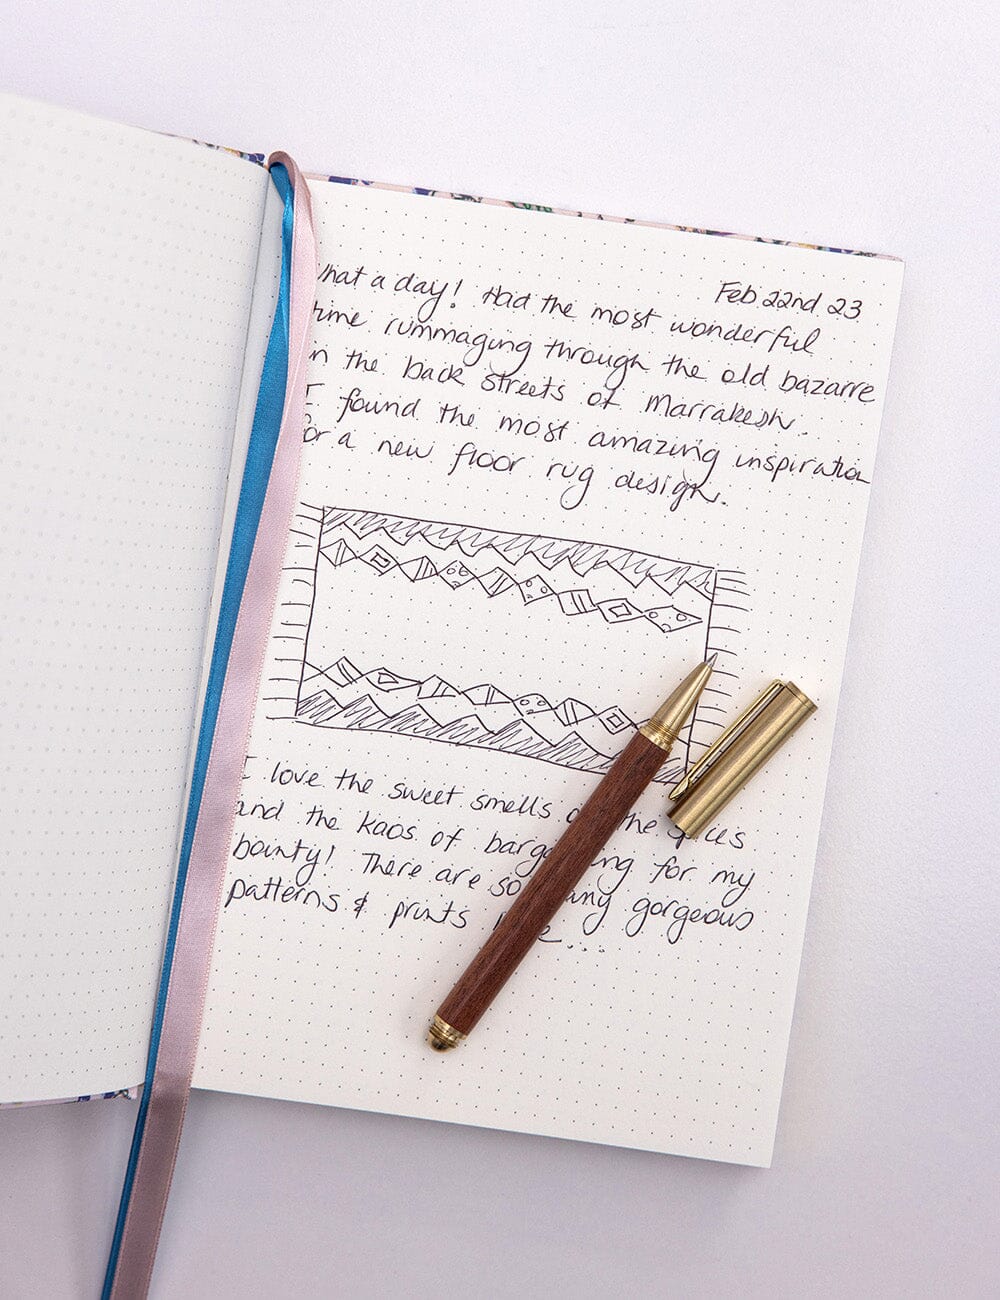 Feb 22nd 23
What a day! Had the most wonderful
time rummaging through the old bazarre
in the back streets of Marrakesh.
I found the most amazing inspiration
for a new floor rug design.
I love the sweet smells the spices
and the kaos of bargaining for my
bounty! There are so many gorgeous
patterns & prints